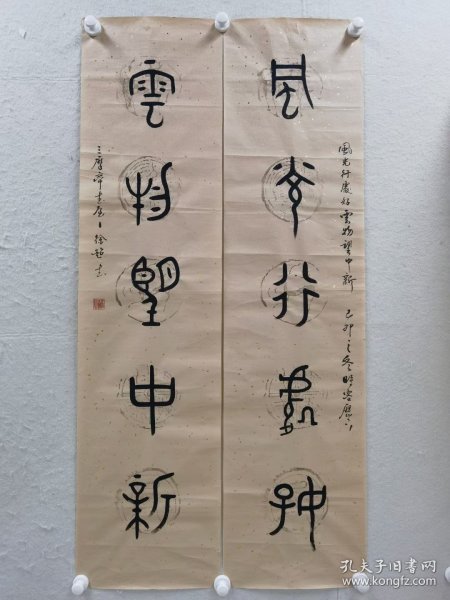 風光行處好
雲物望中新
風光行處好雲物望中新 己卯之冬時客歷下
三摩齋主唐人徐超書
孔夫子旧书网
www.kongfz.com